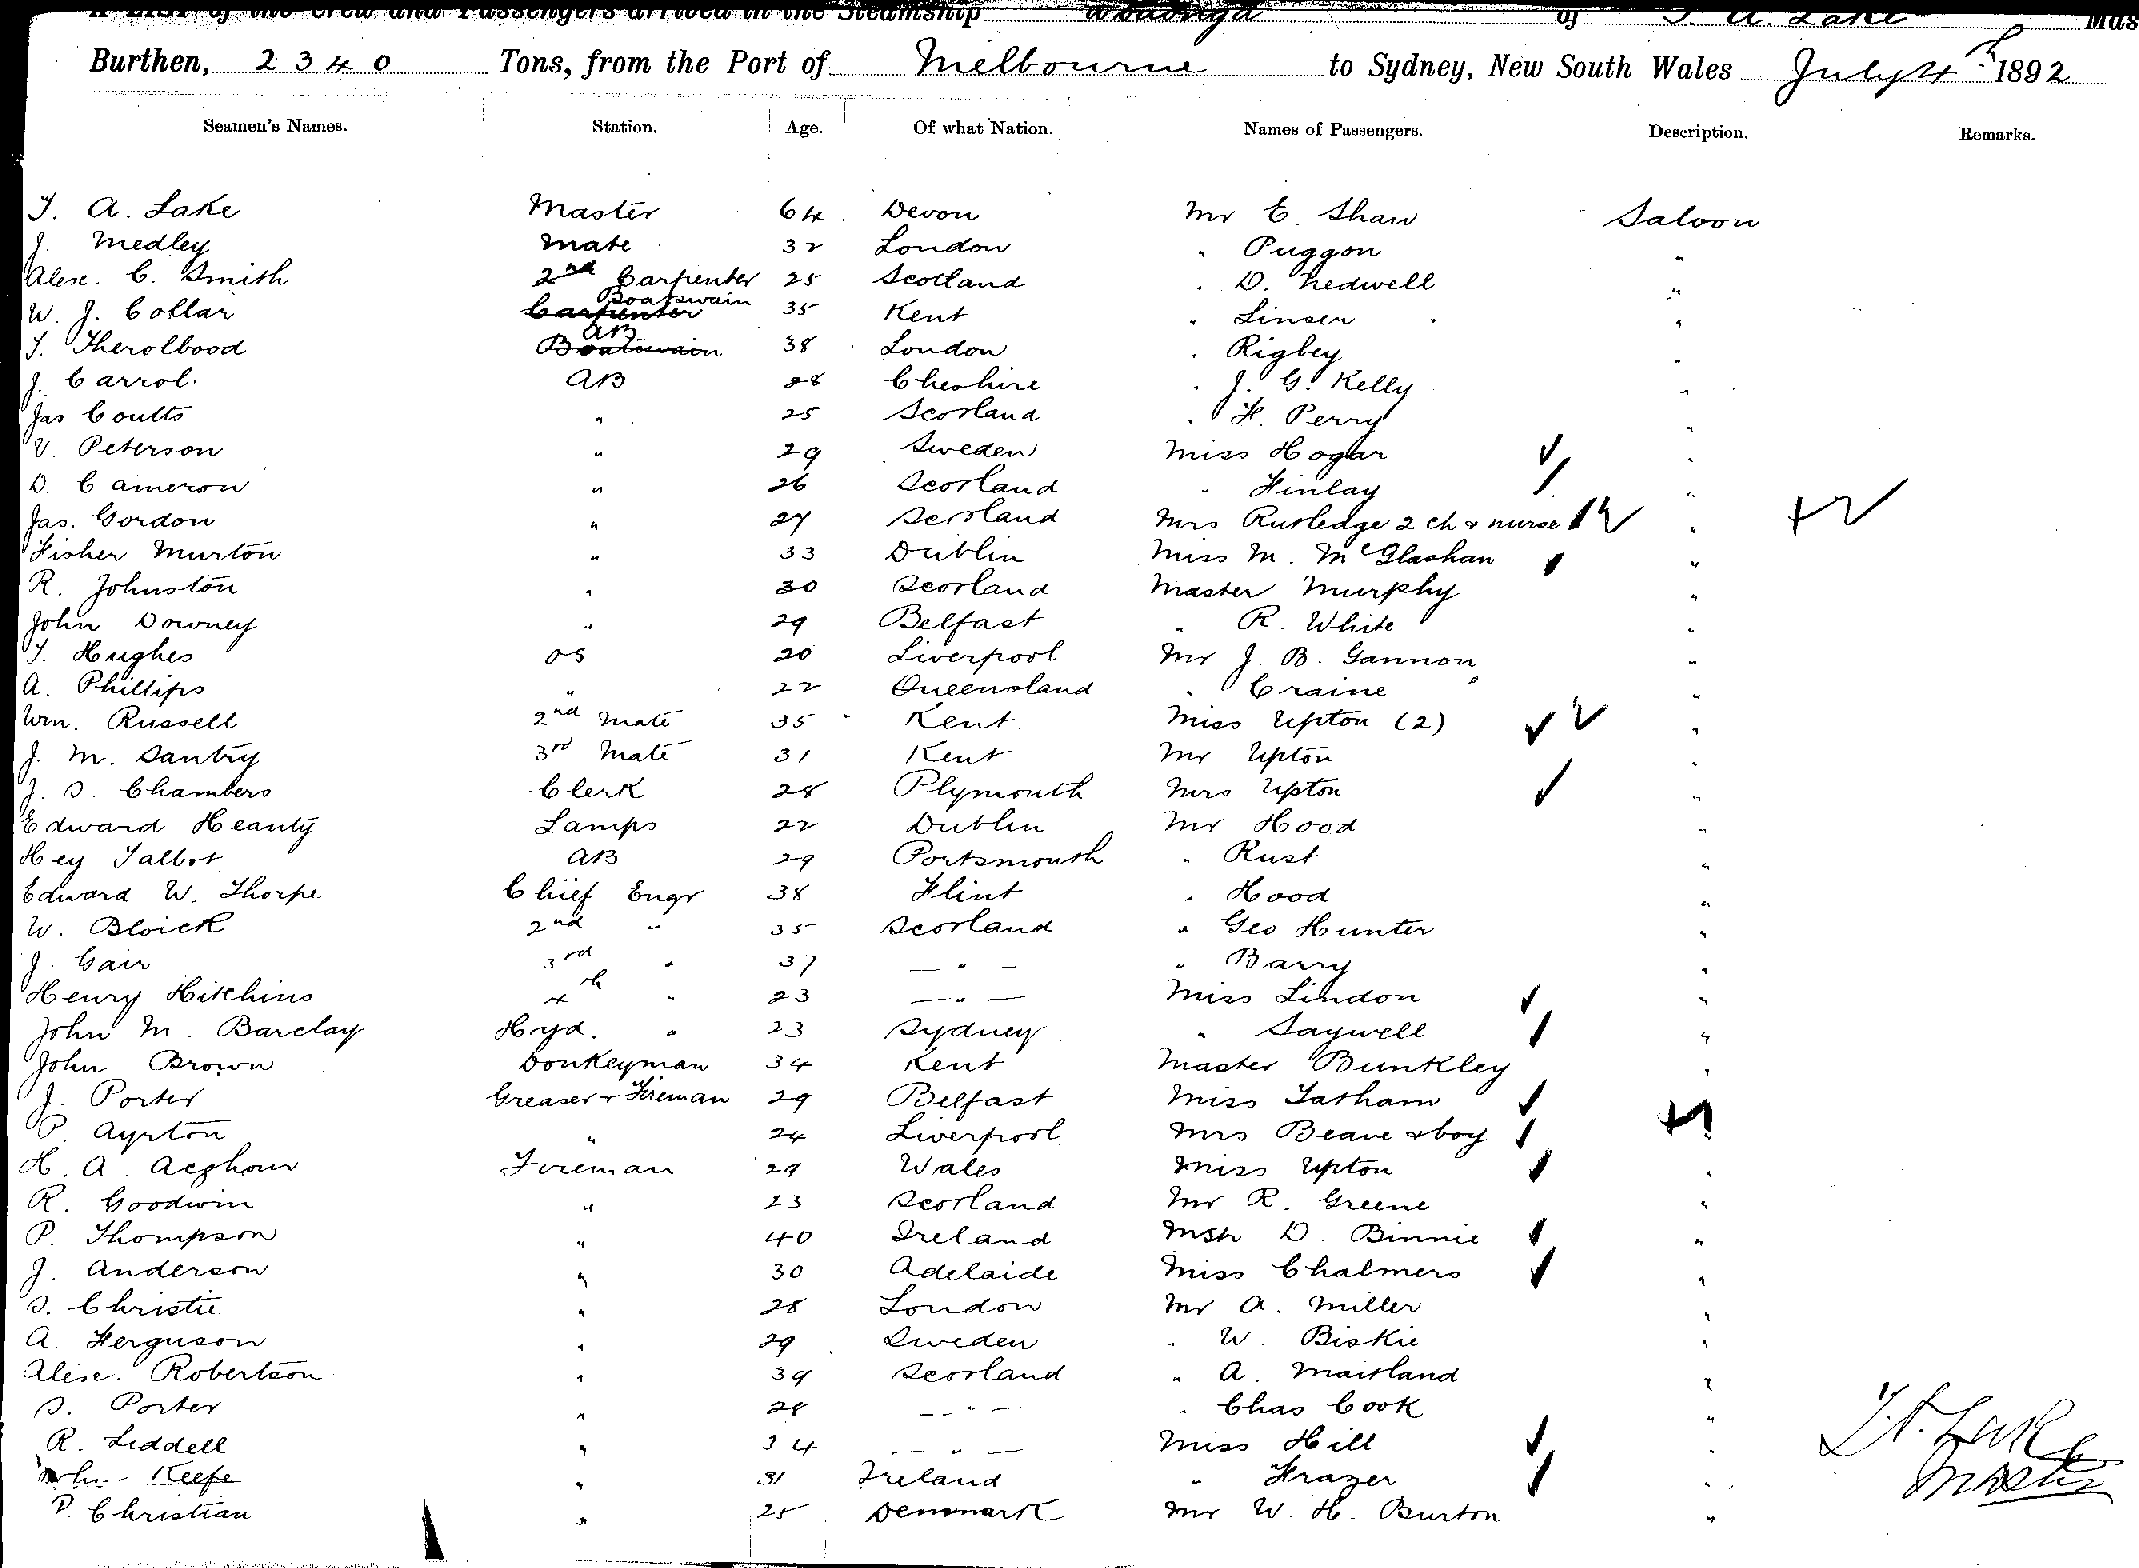 A List of the Crew and Passengers arrived in the Steamship Wodonga of T. A. Lake Mas
Burthen, 2340 Tons, from the Port of Melbourne to Sydney, New South Wales July 4th 1892
Seamen's Names. Station. Age. Of what Nation. Names of Passengers. Description. Remarks.
T. A. Lake Master 64 Devon Mr E. Shaw Saloon
J. Medley Mate 32 London " Puggon "
Alex. C. Smith 2nd Carpenter 25 Scotland " D. Nedwell "
W. J. Collar Carpenter Boatswain 35 Kent " Linsen "
T. Therolbood Boatswain AB 38 London " Rigbey "
J. Carrol. AB 28 Cheshire " J. G. Kelly "
Jas Coutts " 25 Scotland " F. Perry "
V. Peterson " 29 Sweden Miss Hogar "
D. Cameron " 26 Scotland " Finlay "
Jas. Gordon " 27 Scotland Mrs Rutledge 2 ch & nurse "
Fisher Murton " 33 Dublin Miss M. McGlashan "
R. Johnston " 30 Scotland Master Murphy "
John Downey " 29 Belfast " R. White "
T. Hughes OS 20 Liverpool Mr J. B. Gannon "
A. Phillips " 22 Queensland " Craine "
Wm. Russell 2nd Mate 35 Kent Miss Upton (2) "
J. M. Santry 3rd Mate 31 Kent Mr Upton "
J. S. Chambers Clerk 28 Plymouth Mrs Upton "
Edward Heanty Lamps 22 Dublin Mr Hood "
Hey Talbot AB 29 Portsmouth " Rust "
Edward W. Thorpe Chief Engr 38 Flint " Hood "
W. Bloick 2nd " 35 Scotland " Geo Hunter "
J. Gair 3rd " 37 — " — " Barry "
Henry Hitchins 4th " 23 — " — Miss Lindon "
John M. Barclay Hyd. " 23 Sydney " Saywell "
John Brown Donkeyman 34 Kent Master Bunkley "
J. Porter Greaser & Fireman 29 Belfast Miss Tatham
P. Ayrton " 24 Liverpool Mrs Beave & boy
H. A. Fireman 29 Wales Miss Upton "
R. Goodwin " 23 Scotland Mr R. Greene "
P. Thompson " 40 Ireland Mstr D. Binnie "
J. Anderson " 30 Adelaide Miss Chalmers "
S. Christie " 28 London Mr A. Miller "
A. Ferguson " 29 Sweden " W. Biskie "
Alex. Robertson " 39 Scotland " A. Maitland "
S. Porter " 28 — " — " Chas Cook "
R. Liddell " 34 — " — Miss Hill "
John Keefe " 31 Ireland " Frazer "
P. Christian " 25 Denmark Mr W. H. Burton "
T. A. Lake
Master